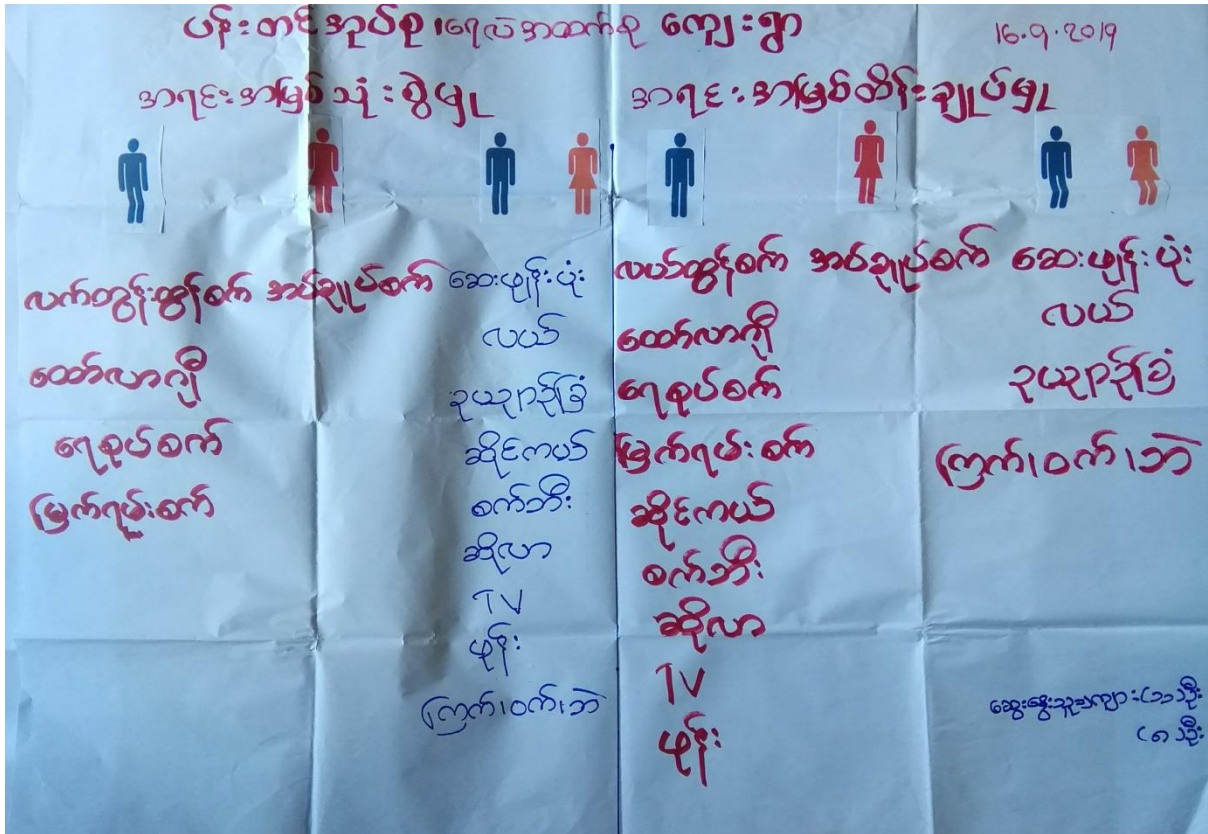 ပန်းတင်အုပ်စု၊ရေလဲအထက်စု ကျေးရွာ 16.9.2019
အရင်းအမြစ်သုံးစွဲမှု
အရင်းအမြစ်ထိန်းချုပ်မှု
လက်တွန်းထွန်စက်
ထော်လာဂျီ
ရေစုပ်စက်
မြက်ရမ်းစက်
အပ်ချုပ်စက်
ဆေးဖျန်းပုံး
လယ်
ဥယျာဉ်ခြံ
ဆိုင်ကယ်
စက်ဘီး
ဆိုလာ
TV
ဖုန်း
ကြက်၊ဝက်၊ဘဲ
လယ်ထွန်စက်
ထော်လာဂျီ
ရေစုပ်စက်
မြက်ရမ်းစက်
ဆိုင်ကယ်
စက်ဘီး
ဆိုလာ
TV
ဖုန်း
အပ်ချုပ်စက်
ဆေးဖျန်းပုံး
လယ်
ဥယျာဉ်ခြံ
ကြက်၊ဝက်၊ဘဲ